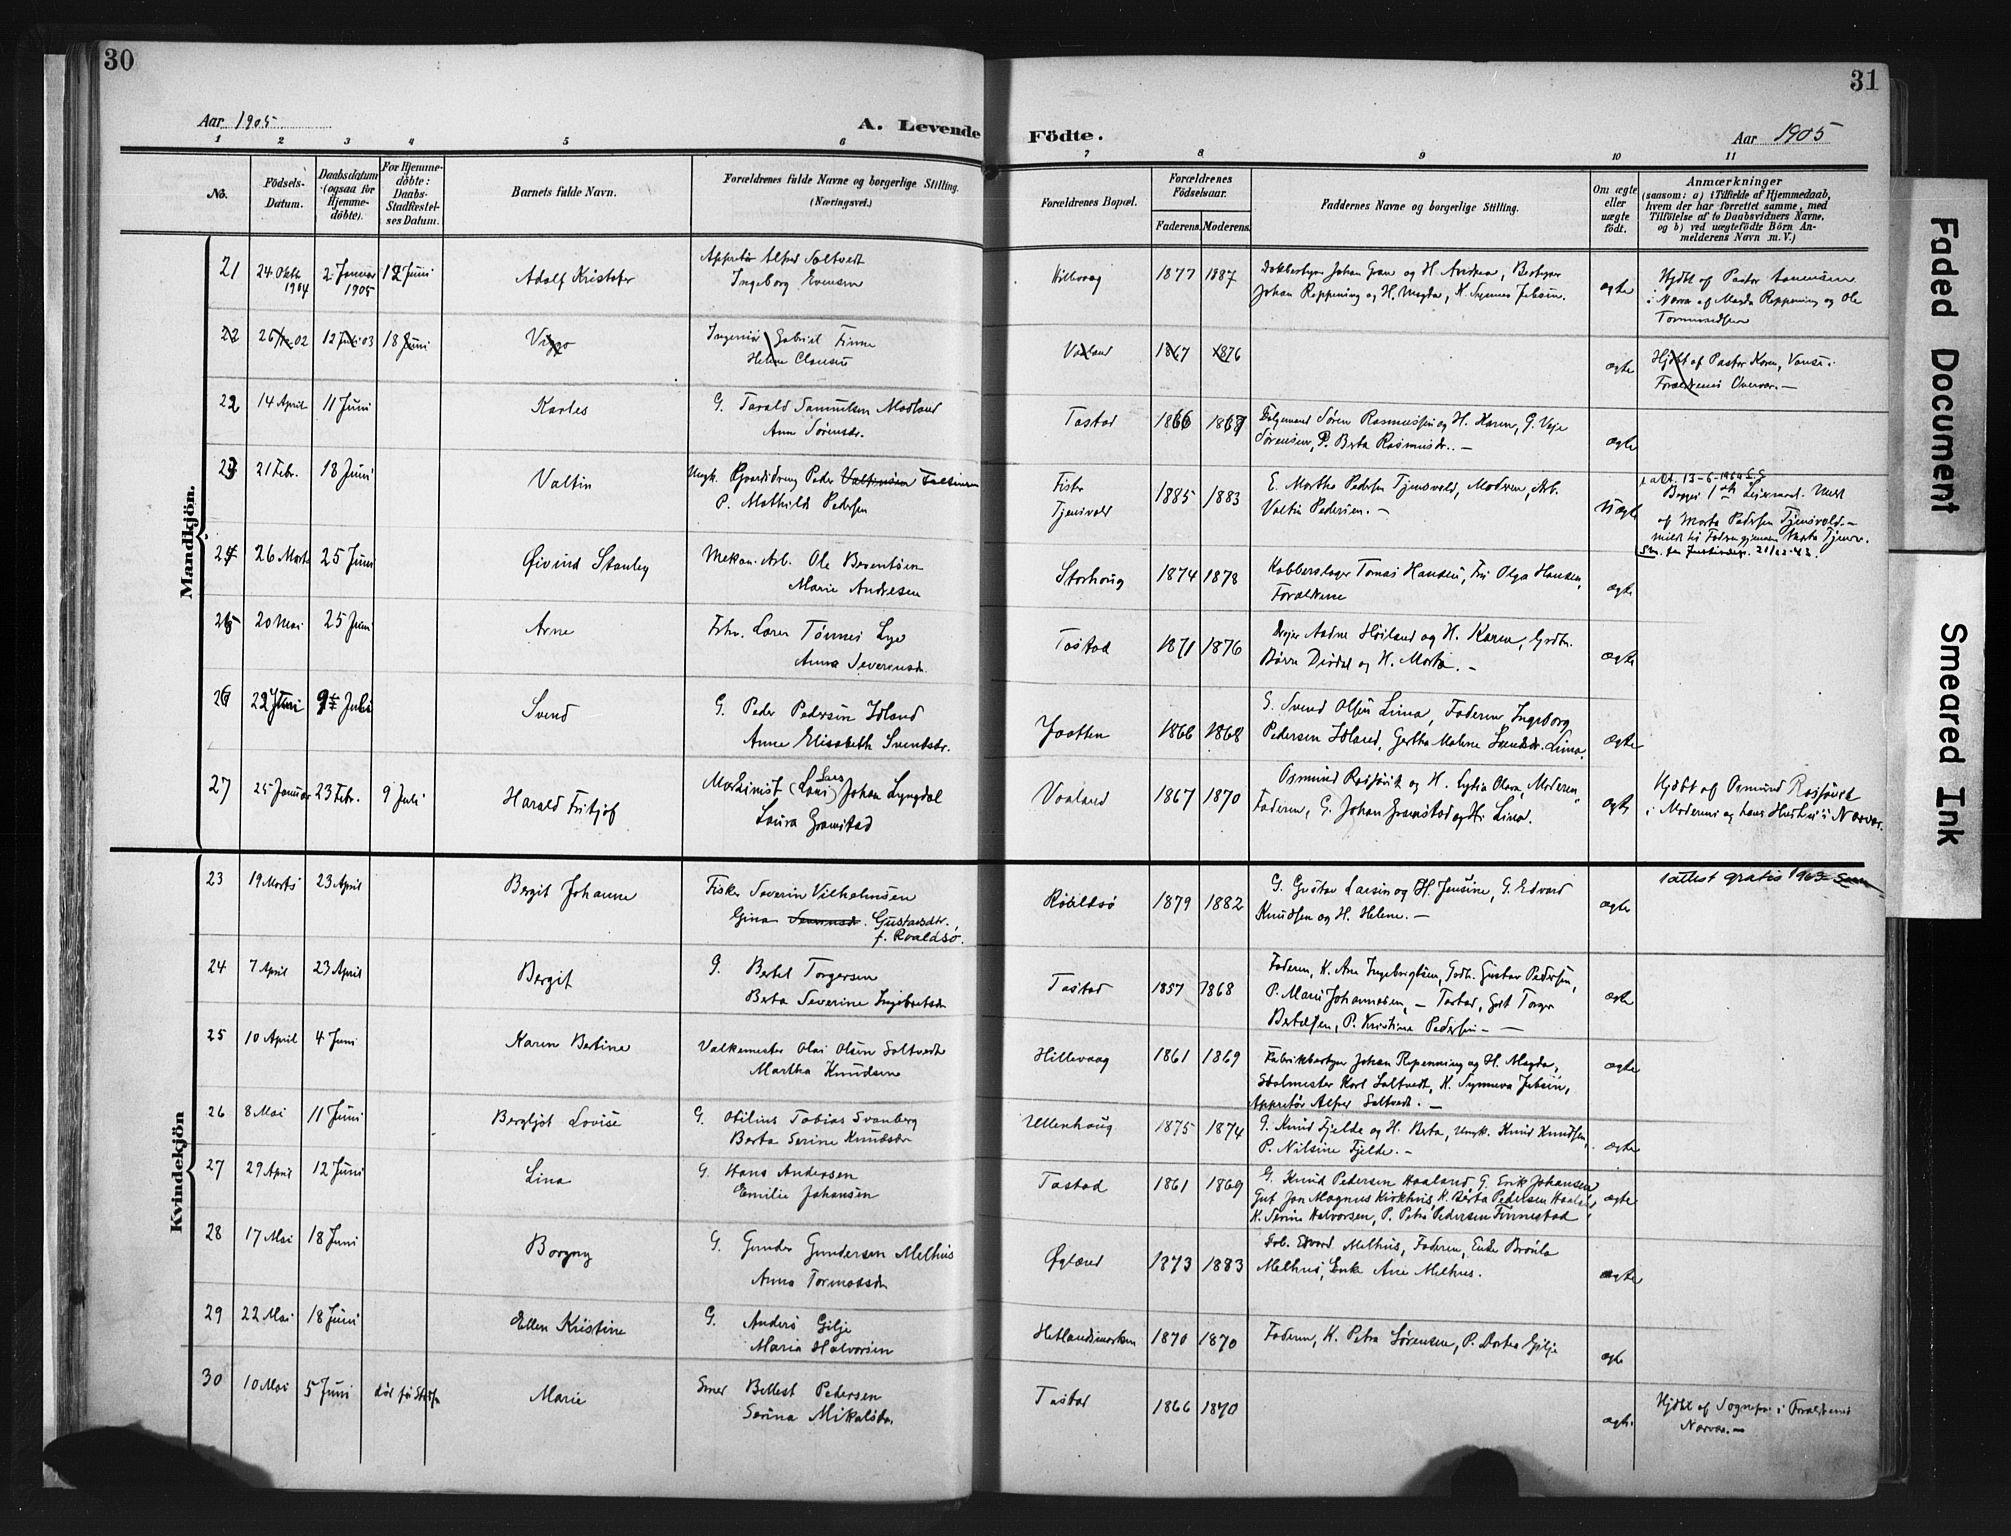 30
31
Aar 1905
A. Levende Födte.
Aar 1905
1 2 3 4 5 6 7 8 9 10 11
No.
Födsels-
Datum.
Daabsdatum
(ogsaa for
Hjemme-
döbte).
For Hjemme-
döbte:
Daabs-
Stadfæstel-
ses Datum.
Barnets fulde Navn.
Forældrenes fulde Navne og borgerlige Stilling.
(Næringsvei.)
Forældrenes Bopæl.
Forældrenes
Födselsaar.
Faderens. Moderens.
Faddernes Navne og borgerlige Stilling.
Om ægte
eller
uægte
födt.
Anmærkninger
(saasom: a) i Tilfælde af Hjemmedaab,
hvem der har forrettet samme, med
Tilföielse af to Daabsvidners Navne,
og b) ved uægtefödte Börn An-
melderens Navn m. V.)
Mandkjön.
21 24 Oktbr 1904 2 Januar 1905 12 Juni Adolf Kristofer
Appretør Alfred Saltvedt
Ingeborg Evensen
Hillevaag 1877 1887
Johan Reppening og H. Magda, K. Synneva Jebsen.
ægte
Hjdbt af Pastor
i Nærv. af Magda Reppening og Ole
Tormundsen
22 26 02 12 Juli 03 18 Juni Viggo
Ingeniør Gabriel Finne
Helene Clausen
Vaaland 1867 1876
ægte
Hjdbt af Pastor Koren, Vanse i
Forældrenes Overvær. —
22 14 April 11 Juni Karles
G. Tarald Samuelsen Madland
Ane Sørensdr.
Tastad 1866 1867
Følgemand Søren Rasmussen og H. Karen, G. Veje
Sørensen, P. Berta Rasmusdr. —
ægte
23 21 Febr. 18 Juni Valtin
Ungk. Gaardsdreng Peder Valtinsen Faltinsen
P. Mathilde Pedersen
Fisker
Tjensvold
1885 1883
E. Martha Pedersen Tjensvold, Modren, Arb.
Valtin Pedersen. —
Uægte
att. 13-6-1964
Begges 1ste Leiermaal. Meldt
af Marta Pedersen Tjensvold. —
24 26 Marts 25 Juni Øivind Stanley
Mekan. Arb. Ole Berentsen
Marie Andresen
Storhaug 1874 1878
Kobberslager Tomas Hansen, Fru Olga Hansen,
Forældrene
ægte
25 20 Mai 25 Juni Arne
Frhv. Laren Tønnes Lye
Anna Severensdr.
Tastad 1871 1876
Drejer Aadne Høiland og H. Karen, Godtn.
Børre Dirdal og H. Marta. —
ægte
26 22 Juni 9de Juli Svend
G. Peder Pedersen Idland
Anne Elisabeth Svendsdr.
Jaatten 1866 1868
G. Svend Olsen Lima, Faderen, Ingeborg
Pedersen Idland, Gertha Malene Svendsdr. Lima
ægte
27 25 Januar 23 Febr. 9 Juli Harald Fritjof
Maskinist (Lars) Lars Johan Lyngdal
Laura Gramstad
Vaaland 1867 1870
Osmund Rossavik og H. Lydia Olava, Moderen,
Faderen, G. Johan Gramstad og H. Lina.
ægte
Hjdbt af Osmund Rossavik
i Moderens og hans Hustrus Nærvær.
Kvindekjön
23 19 Marts 23 April Bergit Johanne
Fisker Severin Vilhelmsen
Gina Severinsdr. Gustavsdtr.
f. Roaldsø.
Roaldsø 1879 1882
G. Gustav Larsen og H. Jensine, G. Edvard
Knudsen og H. Helene. —
ægte
1 attest gratis 1963
24 7 April 23 April Bergit
G. Bertel Torgersen
Berta Severine Ingebretsdr
Tastad 1857 1868
Faderen, K. Ane Ingebrigtsen, Godtn. Gustav Pedersen,
P. Marie Johannesen, — Tastad, Gut Torger
Bertelsen, P. Kristina Pedersen — —
ægte
25 10 April 4 Juni Karen Bertine
Valkemester Olai Olsen Saltvedt
Martha Knudsen
Hillevaag 1861 1869
Fabrikbestyrer Johan Repenning og H. Magda,
Stolmester Karl Saltvedt, K. Synneva Jebsen,
Appretør Alfred Saltvedt. —
ægte
26 8 Mai 11 Juni Bergljot Lovise
G. Otilius Tobias Svanberg
Berta Serine Knudsdr
Ullenhaug 1875 1874
G. Knud Fjelde og H. Berta, Ungk. Knud Knudsen,
P. Nilsine Fjelde. —
ægte
27 29 April 12 Juni Lina
G. Hans Andersen
Emilie Johansen
Tastad 1861 1869
G. Knud Pedersen Haaland, G. Erik Johansen
Gut Jon Magnus Kirkhus, K. Berta Pedersen Haaland,
K. Serine Halvorsen, P. Petra Pedersen Finnestad
ægte
28 17 Mai 18 Juni Borgny
G. Gunder Gundersen Melhus
Anna Tormodsdr
Øglænd 1873 1883
Arb. Edvard Melhus, Faderen, Enke Brynla
Melhus, Enke Ane Melhus.
ægte
29 22 Mai 18 Juni Ellen Kristine
G. Anders Gilje
Maria Halvorsen
Hetlandsmarken 1870 1870
Faderen, K. Petra Sørensen, P. Dortea Gilje
ægte
30 10 Mai 5 Juni død før Stadf. Marie
Smed Bellest Pedersen
Serina Mikalsdr
Tastad 1866 1870
ægte
Hjdbt af Sognepr. i Forældrenes
Nærvær. —
Faded Document
Smeared Ink